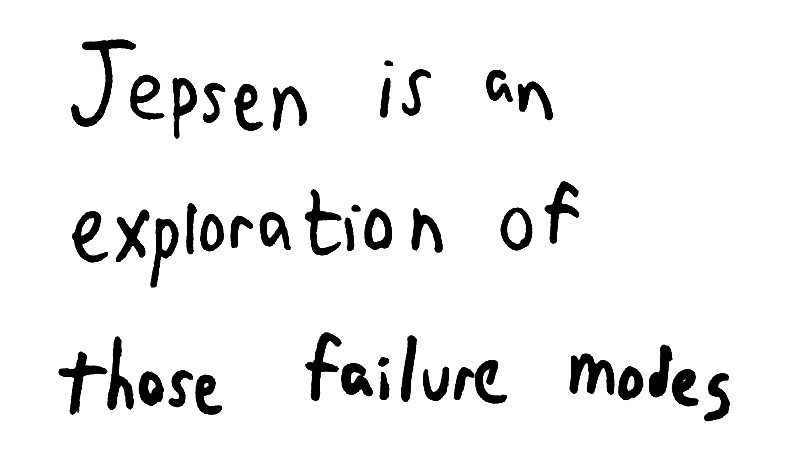 Jepsen is an
exploration of
those failure modes